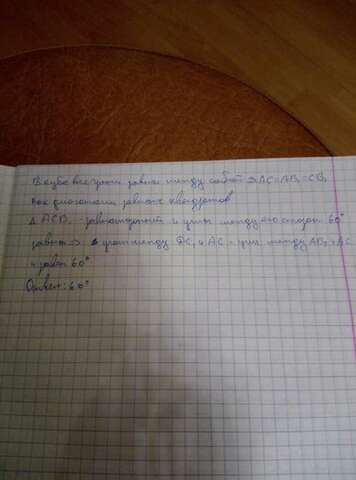 В кубе все грани равны между собой ⇒ AC=AB₁=CB₁
как диагонали равных квадратов
Δ ACB₁ - равносторонний и углы между его сторон. 60°
равны ⇒ угол между DC₁ и AC = угл. между AB₁ и AC
и равен 60°
Ответ: 60°